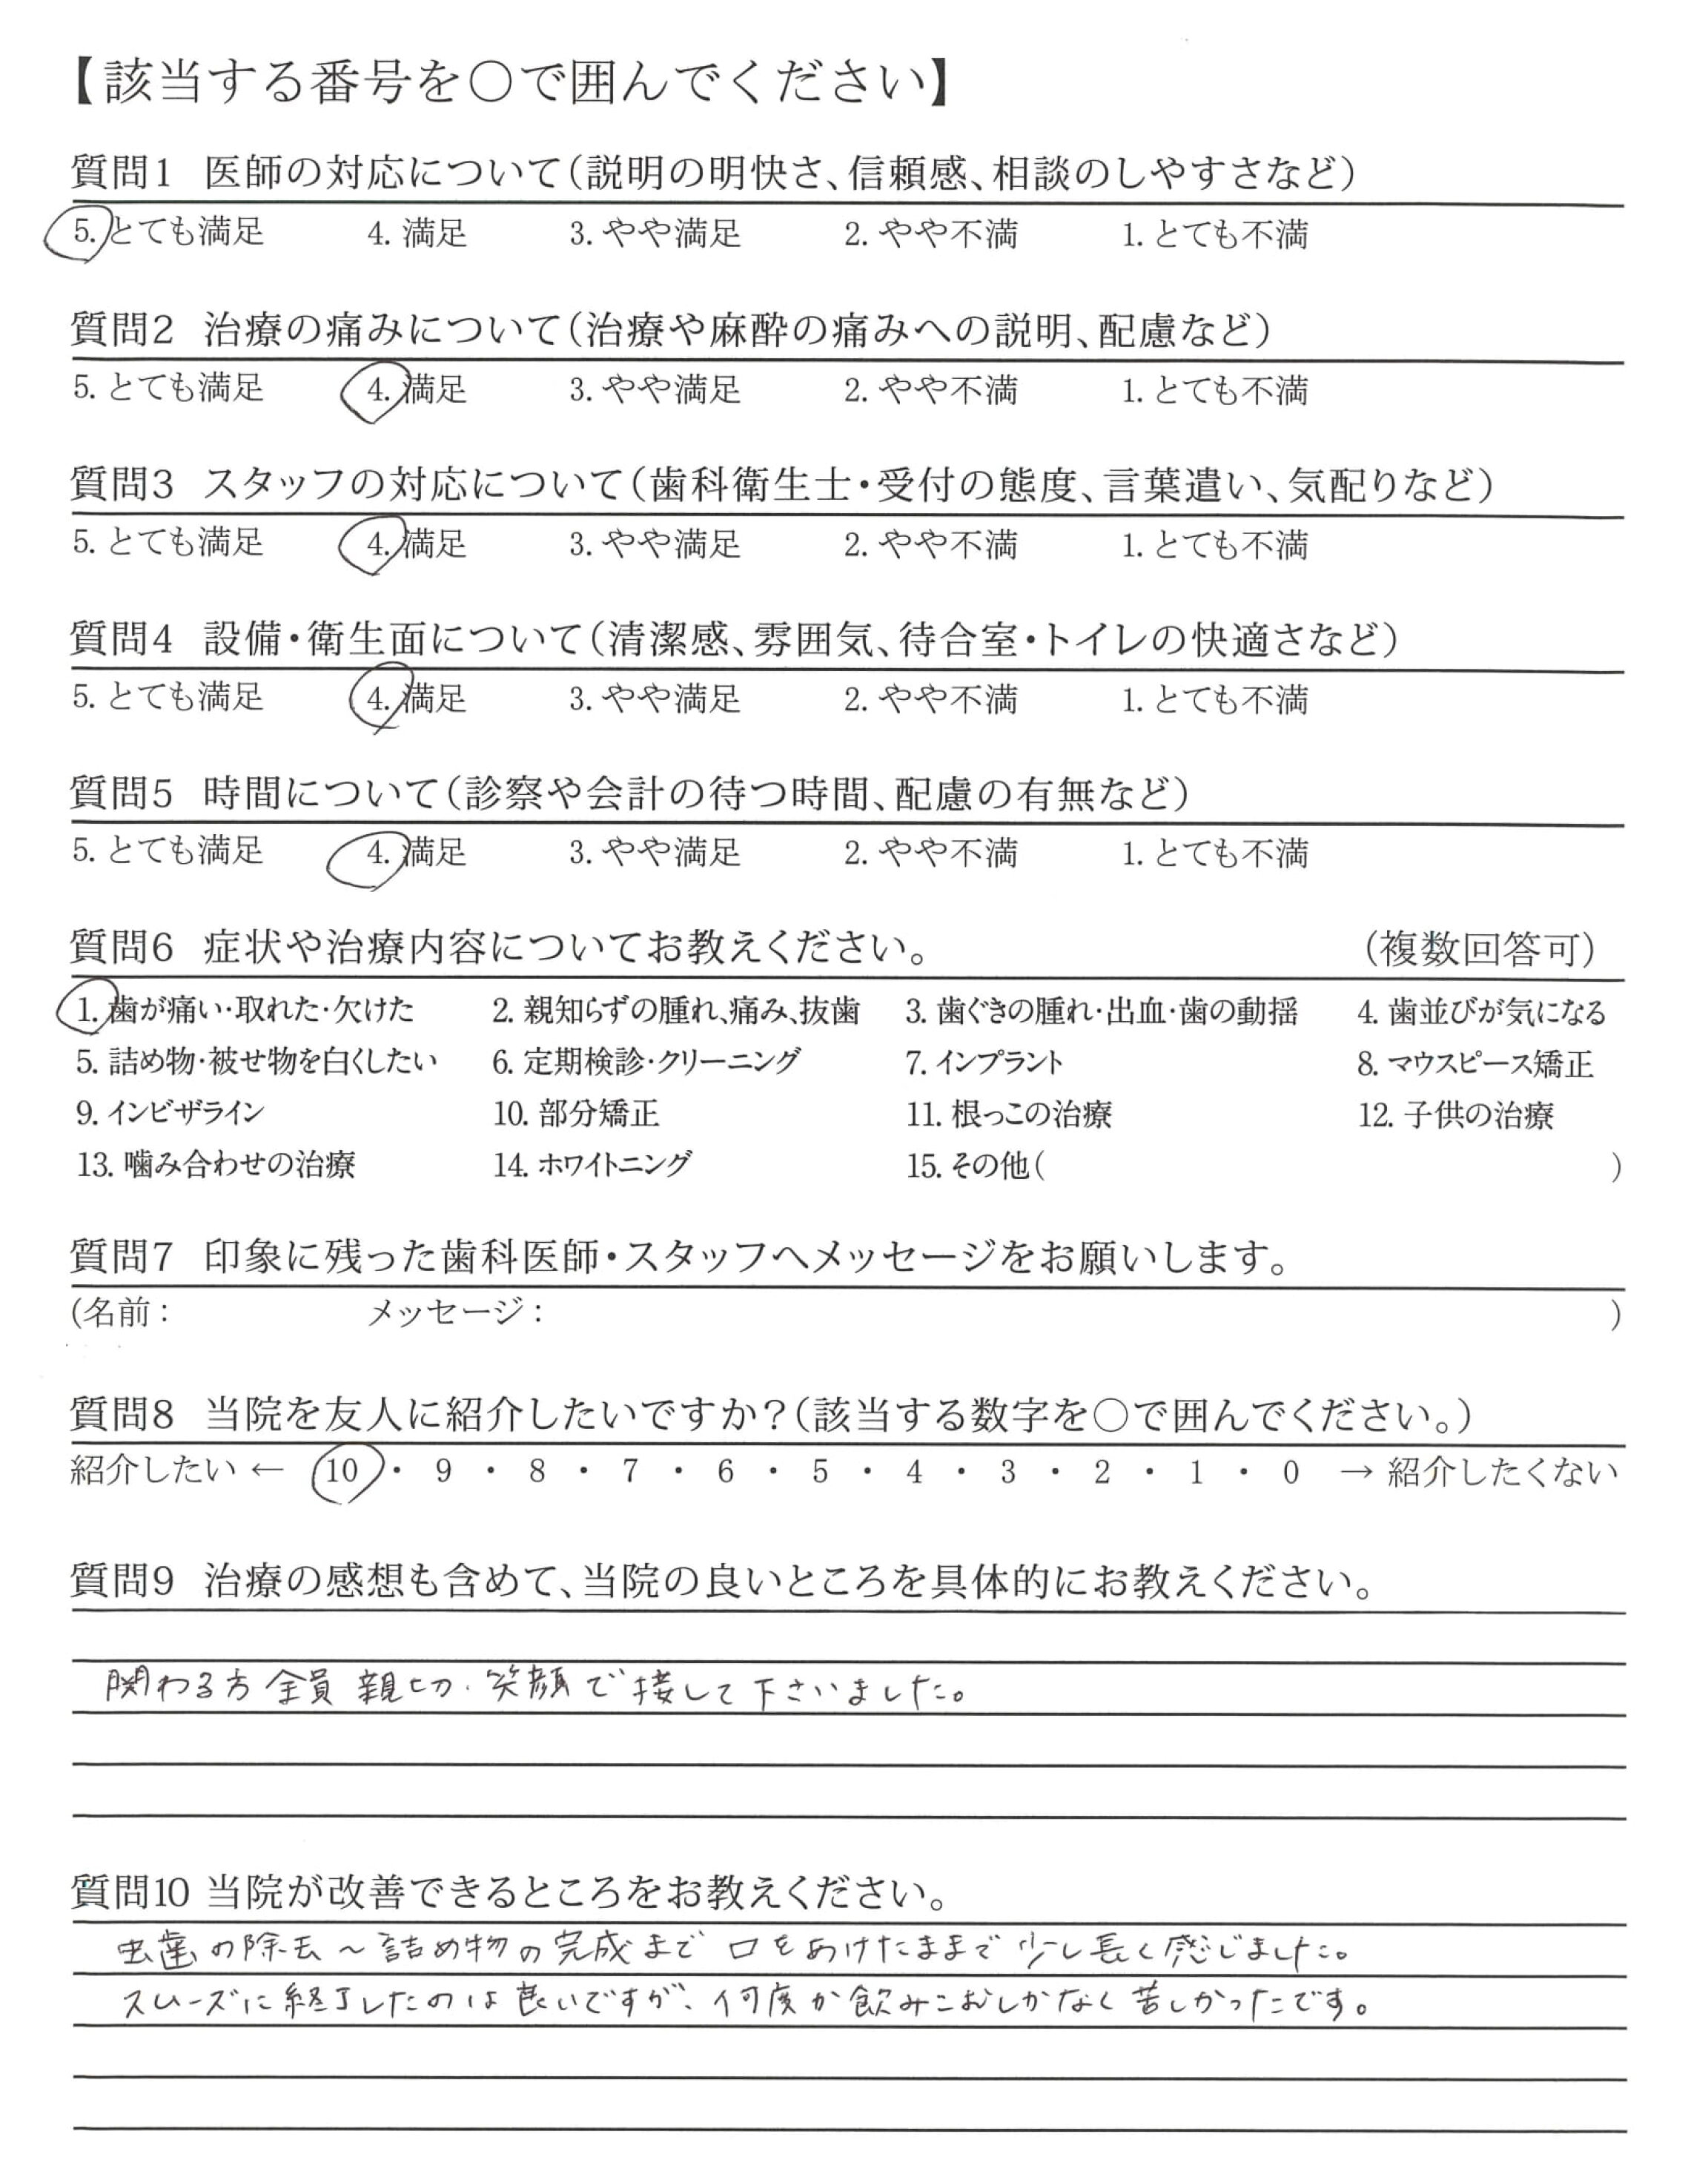 【該当する番号を○で囲んでください】
質問1 医師の対応について(説明の明快さ、信頼感、相談のしやすさなど)
5. とても満足 4. 満足 3. やや満足 2. やや不満 1. とても不満
質問2 治療の痛みについて(治療や麻酔の痛みへの説明、配慮など)
5. とても満足 4. 満足 3. やや満足 2. やや不満 1. とても不満
質問3 スタッフの対応について(歯科衛生士・受付の態度、言葉遣い、気配りなど)
5. とても満足 4. 満足 3. やや満足 2. やや不満 1. とても不満
質問4 設備・衛生面について(清潔感、雰囲気、待合室・トイレの快適さなど)
5. とても満足 4. 満足 3. やや満足 2. やや不満 1. とても不満
質問5 時間について(診察や会計の待つ時間、配慮の有無など)
5. とても満足 4. 満足 3. やや満足 2. やや不満 1. とても不満
質問6 症状や治療内容についてお教えください。 (複数回答可)
1. 歯が痛い・取れた・欠けた 2. 親知らずの腫れ、痛み、抜歯 3. 歯ぐきの腫れ・出血・歯の動揺 4. 歯並びが気になる
5. 詰め物・被せ物を白くしたい 6. 定期検診・クリーニング 7. インプラント 8. マウスピース矯正
9. インビザライン 10. 部分矯正 11. 根っこの治療 12. 子供の治療
13. 噛み合わせの治療 14. ホワイトニング 15. その他( )
質問7 印象に残った歯科医師・スタッフへメッセージをお願いします。
(名前: メッセージ: )
質問8 当院を友人に紹介したいですか?(該当する数字を○で囲んでください。)
紹介したい ← 10 ・ 9 ・ 8 ・ 7 ・ 6 ・ 5 ・ 4 ・ 3 ・ 2 ・ 1 ・ 0 → 紹介したくない
質問9 治療の感想も含めて、当院の良いところを具体的にお教えください。
関わる方全員親切、笑顔で接して下さいました。
質問10 当院が改善できるところをお教えください。
虫歯の除去〜詰め物の完成まで口をあけたままで少し長く感じました。
スムーズに終了したのは良いですが、何度か飲みこむしかなく苦しかったです。